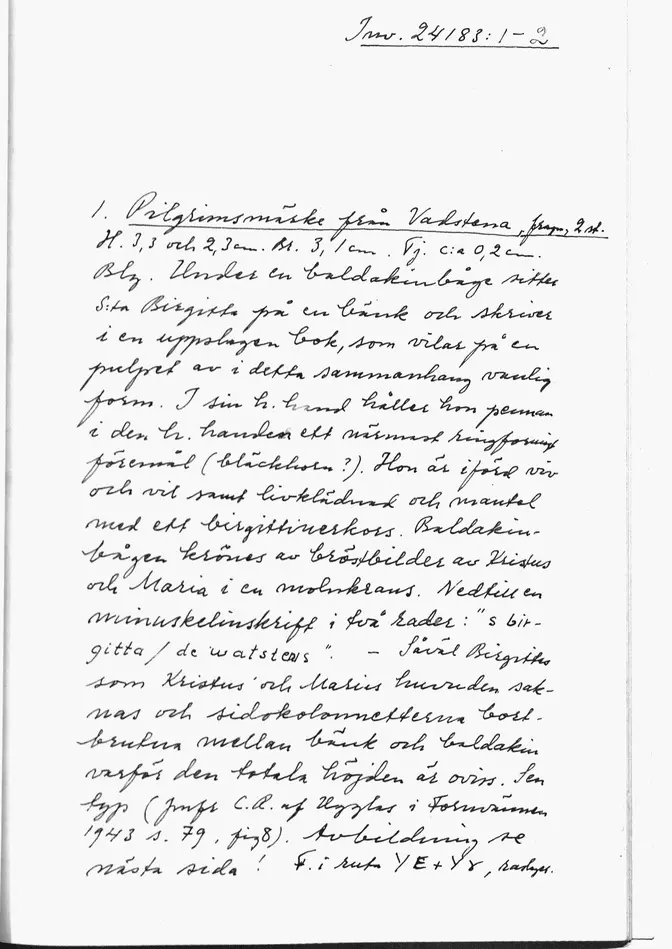 Inv. 24183:1-2
1. Pilgrimsmärke från Vadstena, fragm, 2 st.
H. 3,3 och 2,3 cm. Br. 3,1 cm. Tj. c:a 0,2 cm.
Bly. Under en baldakinbåge sitter
S:ta Birgitta på en bänk och skriver
i en uppslagen bok, som vilar på en
pulpet av i detta sammanhang vanlig
form. I sin h. hand håller hon pennan
i den v. handen ett närmast ringformigt
föremål (bläckhorn?). Hon är iförd viv
och vil samt livklädnad och mantel
med ett birgittinerkors. Baldakin-
bågen krönes av bröstbilder av Kristus
och Maria i en molnkrans. Nedtill en
minuskelinskrift i två rader: "s bir-
gitta / de watstens". - Såväl Birgittas
som Kristus' och Marias huvuden sak-
nas och sidokolonnetterna bort-
brutna mellan bänk och baldakin
varför den totala höjden är oviss. Sen
typ (jmfr C.R. af Ugglas i Fornvännen
1943 s. 79, fig 8). Avbildning se
nästa sida! F. i ruta YE+Yγ,